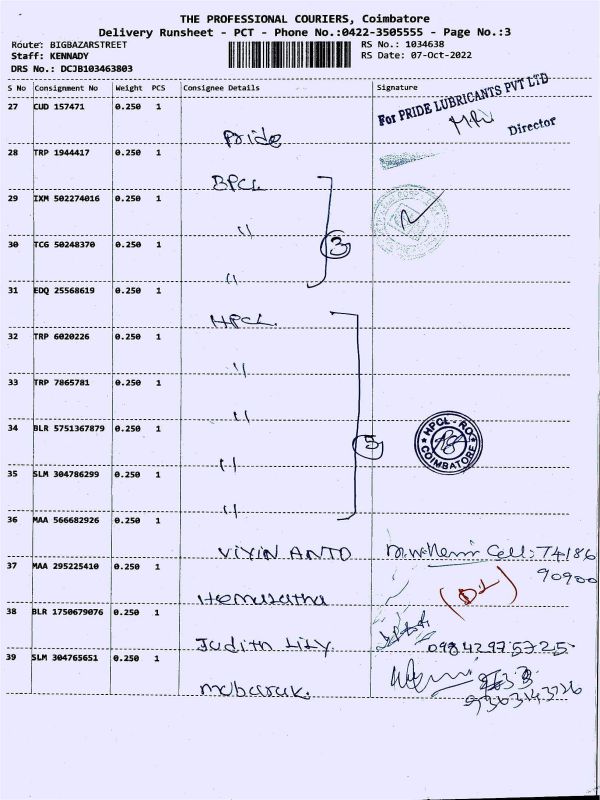 THE PROFESSIONAL COURIERS, Coimbatore
Delivery Runsheet - PCT - Phone No.:0422-3505555 - Page No.:3
Route: BIGBAZARSTREET RS No.: 1034638
Staff: KENNADY RS Date: 07-Oct-2022
DRS No.: DCJB103463803
S No Consignment No Weight PCS Consignee Details Signature
27 CUD 157471 0.250 1 For PRIDE LUBRICANTS PVT LTD
Pride Director
28 TRP 1944417 0.250 1
BPCL
29 IXM 502274016 0.250 1
"
3
30 TCG 50248370 0.250 1
"
31 EDQ 25568619 0.250 1
HPCL
32 TRP 6020226 0.250 1
"
33 TRP 7865781 0.250 1
"
34 BLR 5751367879 0.250 1 HPCL-RO COIMBATORE
5
"
35 SLM 304786299 0.250 1
"
36 MAA 566682926 0.250 1
VIYIN ANTO Cell: 74186
37 MAA 295225410 0.250 1 90900
Hemalatha
38 BLR 1750679076 0.250 1
Judith Lily 09842975725
39 SLM 304765651 0.250 1
Mubarak.